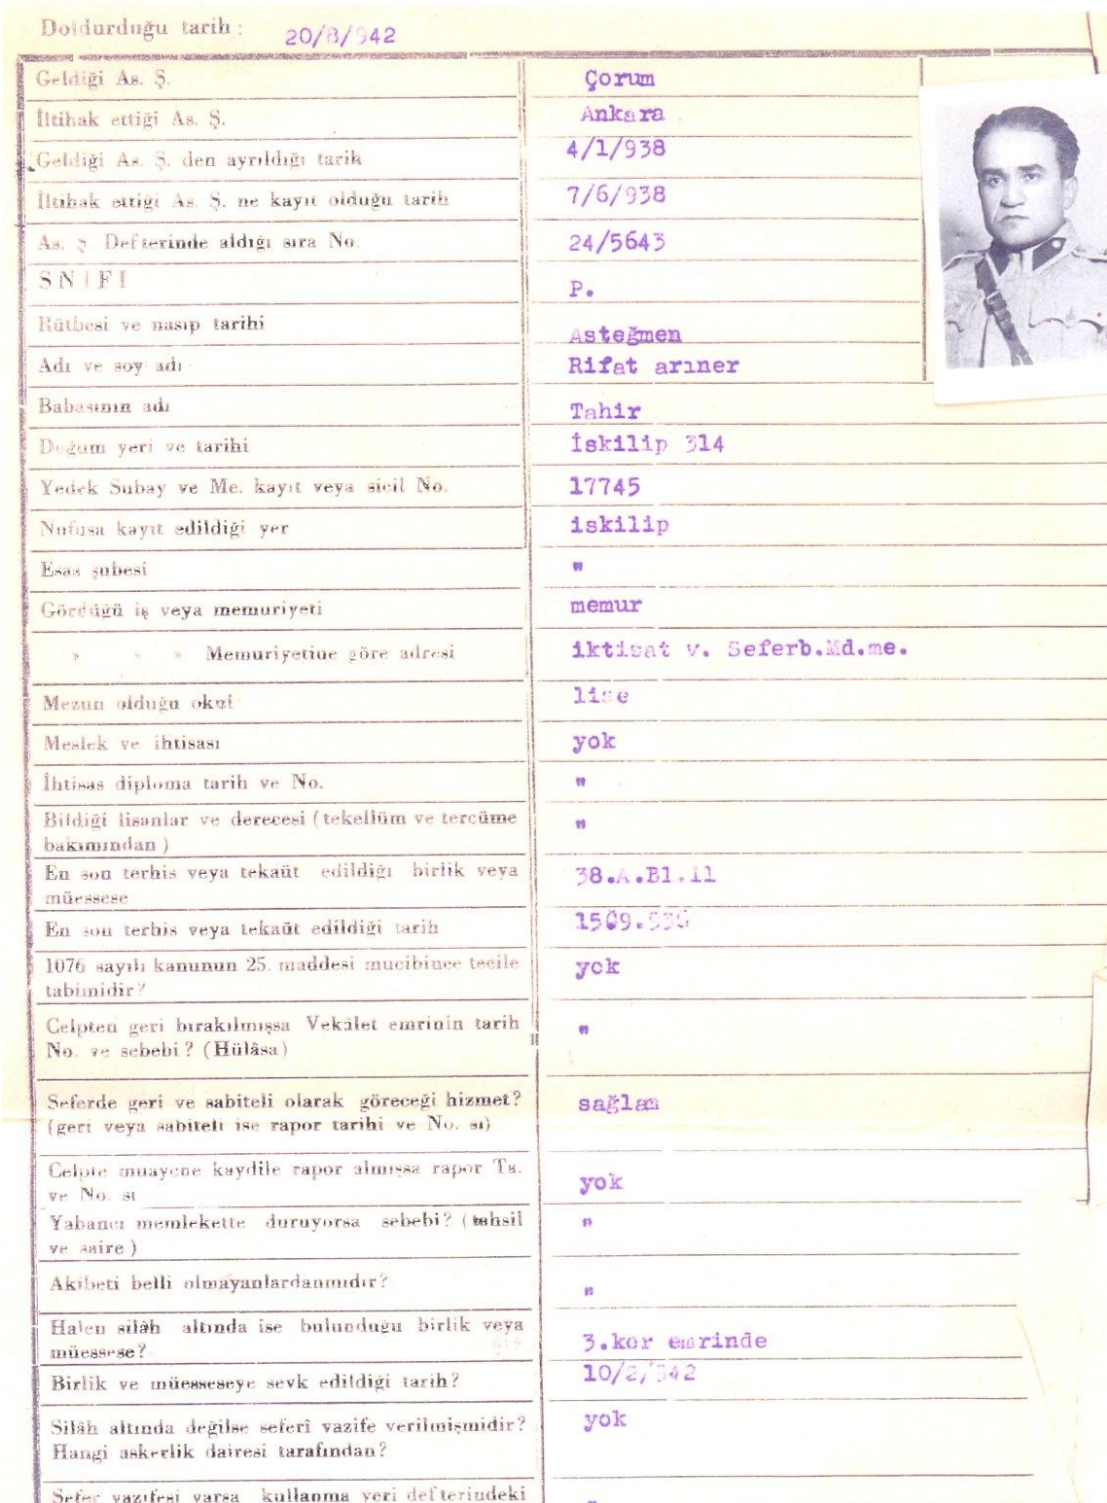 Doldurduğu tarih : 20/8/942
Geldiği As. Ş. Çorum
İltihak ettiği As. Ş. Ankara
Geldiği As. Ş. den ayrıldığı tarih 4/1/938
İltihak ettiği As. Ş. ne kayıt olduğu tarih 7/6/938
As. Ş Defterinde aldığı sıra No. 24/5643
SNIFI P.
Rütbesi ve nasıp tarihi Asteğmen
Adı ve soy adı Rifat arıner
Babasının adı Tahir
Doğum yeri ve tarihi İskilip 314
Yedek Subay ve Me. kayıt veya sicil No. 17745
Nufusa kayıt edildiği yer iskilip
Esas şubesi "
Gördüğü iş veya memuriyeti memur
» » » Memuriyetine göre adresi iktisat v. Seferb.Md.me.
Mezun olduğu okul lise
Meslek ve ihtisası yok
İhtisas diploma tarih ve No. "
Bildiği lisanlar ve derecesi (tekellüm ve tercüme "
bakımından)
En son terhis veya tekaüt edildiği birlik veya 38.A.Bl.11
müessese
En son terhis veya tekaüt edildiği tarih
1076 sayılı kanunun 25. maddesi mucibince tecile yok
tabimidir?
Celpten geri bırakılmışsa Vekâlet emrinin tarih "
No. ve sebebi? (Hülâsa)
Seferde geri ve sabiteli olarak göreceği hizmet? sağlam
(geri veya sabiteli ise rapor tarihi ve No. sı)
Celpte muayene kaydile rapor almışsa rapor Ta. yok
ve No. sı
Yabancı memlekette duruyorsa sebebi? (tahsil "
ve saire)
Akibeti belli olmayanlardanmıdır? "
Halen silâh altında ise bulunduğu birlik veya
müessese? 3.kor emrinde
Birlik ve müesseseye sevk edildiği tarih? 10/2/942
Silâh altında değilse seferî vazife verilmişmidir? yok
Hangi askerlik dairesi tarafından?
Sefer vazifesi varsa kullanma yeri defterindeki